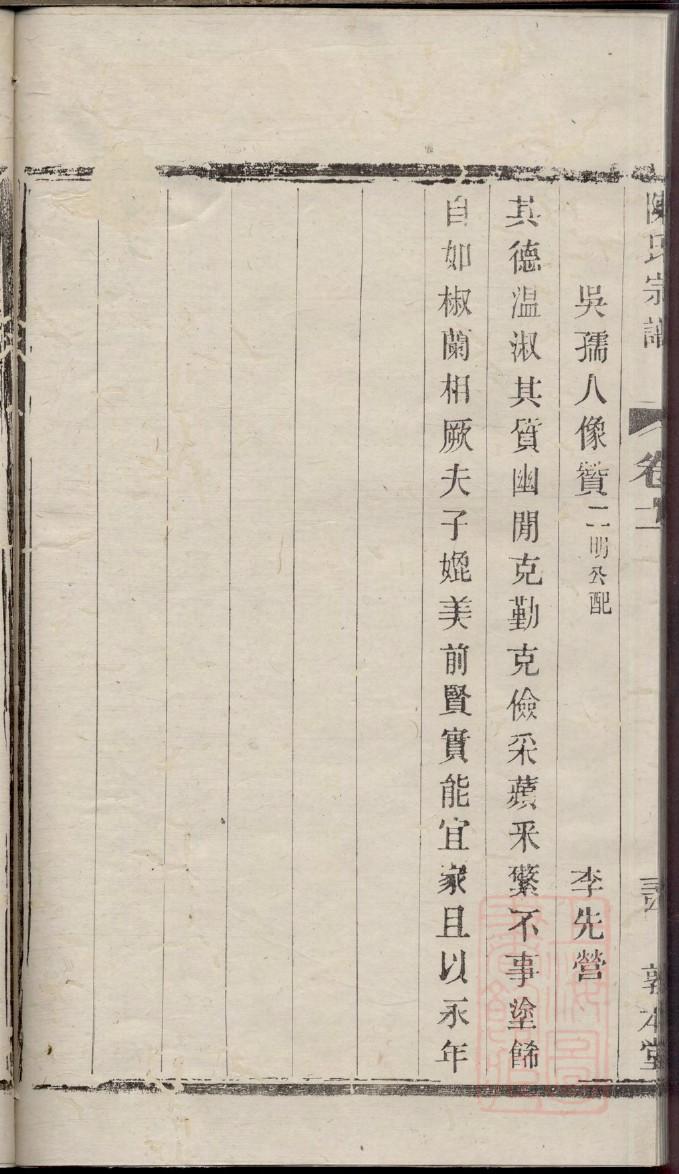 陳氏宗譜 卷 敦本堂
吳孺人像贊 二明公配 李先營
其德温淑其質幽閒克勤克儉采蘋采蘩不事塗餙
自如椒蘭相厥夫子媲美前賢實能宜家且以永年